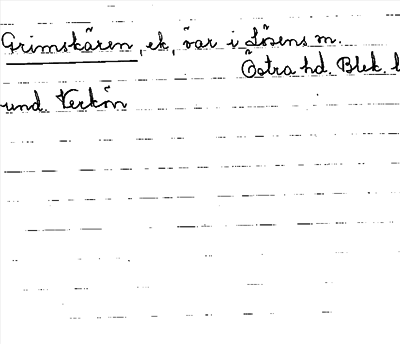 Grimskären, ek, öar i Lösens sn.
Östra hd. Blek. l
und. Verkön